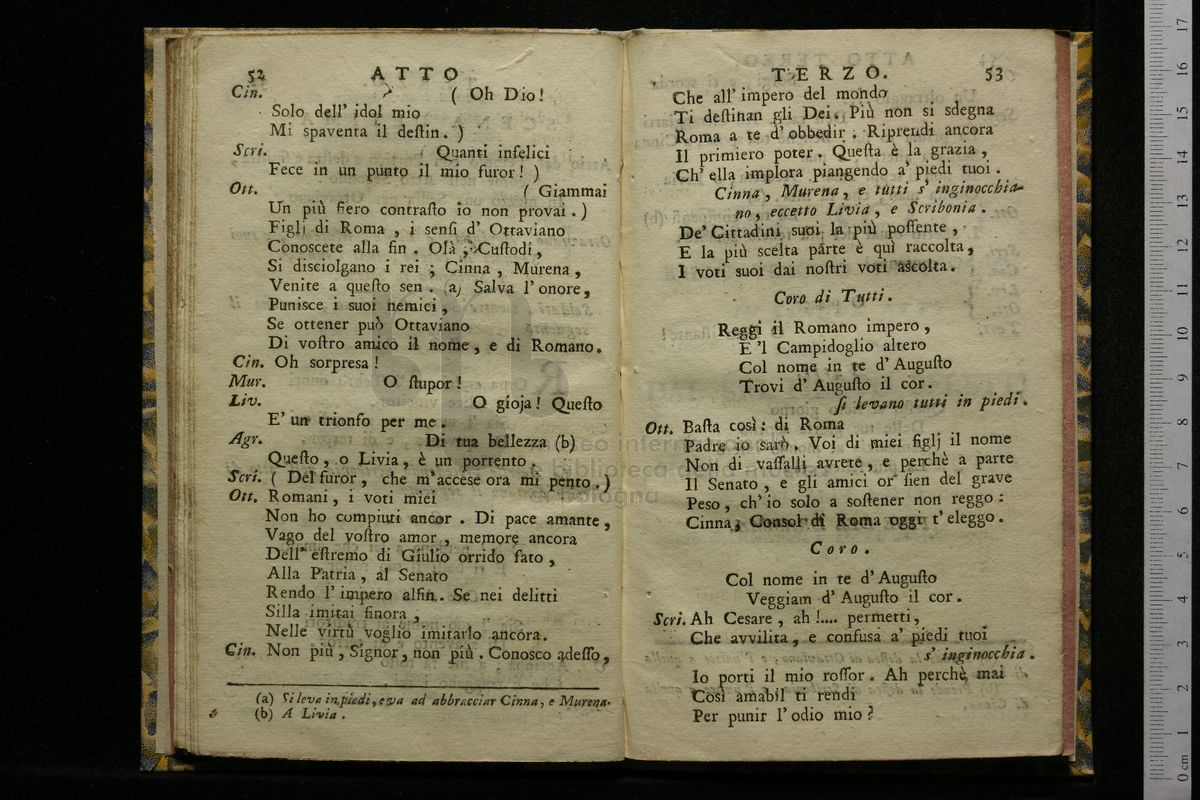 52 ATTO
Cin. ( Oh Dio!
Solo dell' idol mio
Mi spaventa il deſtin. )
Scri. ( Quanti infelici
Fece in un punto il mio furor! )
Ott. ( Giammai
Un più fiero contraſto io non provai. )
Figlj di Roma, i senſi d' Ottaviano
Conoscete alla fin. Olà, Cuſtodi,
Si disciolgano i rei; Cinna, Murena,
Venite a queſto sen. (a) Salva l' onore,
Punisce i suoi nemici,
Se ottener può Ottaviano
Di voſtro amico il nome, e di Romano.
Cin. Oh sorpresa!
Mur. O ſtupor!
Liv. O gioja! Queſto
E' un trionfo per me.
Agr. Di tua bellezza (b)
Queſto, o Livia, è un portento.
Scri. ( Del furor, che m' accese ora mi pento. )
Ott. Romani, i voti miei
Non ho compiuti ancor. Di pace amante,
Vago del voſtro amor, memore ancora
Dell' eſtremo di Giulio orrido fato,
Alla Patria, al Senato
Rendo l' impero alfin. Se nei delitti
Silla imitai finora,
Nelle virtù voglio imitarlo ancora.
Cin. Non più, Signor, non più. Conosco adeſſo,
(a) Si leva in piedi, e va ad abbracciar Cinna, e Murena.
(b) A Livia.
TERZO. 53
Che all' impero del mondo
Ti deſtinan gli Dei. Più non si sdegna
Roma a te d' obbedir. Riprendi ancora
Il primiero poter. Queſta è la grazia,
Ch' ella implora piangendo a' piedi tuoi.
Cinna, Murena, e tutti s' inginocchia-
no, eccetto Livia, e Scribonia.
De' Cittadini suoi la più poſſente,
E la più scelta parte è quì raccolta,
I voti suoi dai noſtri voti ascolta.
Coro di Tutti.
Reggi il Romano impero,
E 'l Campidoglio altero
Col nome in te d' Auguſto
Trovi d' Auguſto il cor.
ſi levano tutti in piedi.
Ott. Baſta così: di Roma
Padre io sarò. Voi di miei figlj il nome
Non di vaſſalli avrete, e perchè a parte
Il Senato, e gli amici or ſien del grave
Peso, ch' io solo a soſtener non reggo:
Cinna, Consol di Roma oggi t' eleggo.
Coro.
Col nome in te d' Auguſto
Veggiam d' Auguſto il cor.
Scri. Ah Cesare, ah!.... permetti,
Che avvilita, e confusa a' piedi tuoi
s' inginocchia.
Io porti il mio roſſor. Ah perchè mai
Così amabil ti rendi
Per punir l' odio mio?